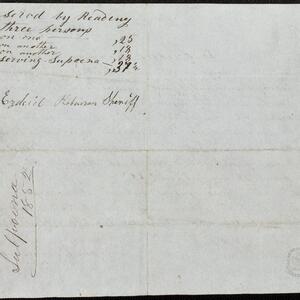 served by Reading
three persons
on one ,25
on another ,18
on another ,18
serving Supoena ,37½
Ezekiel Robinson Sheriff
Subpoena
1852